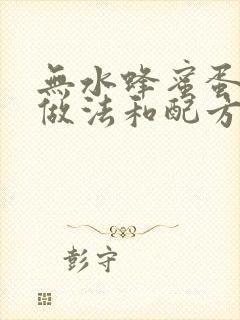 無水蜂蜜蛋
做法和配方
彭守